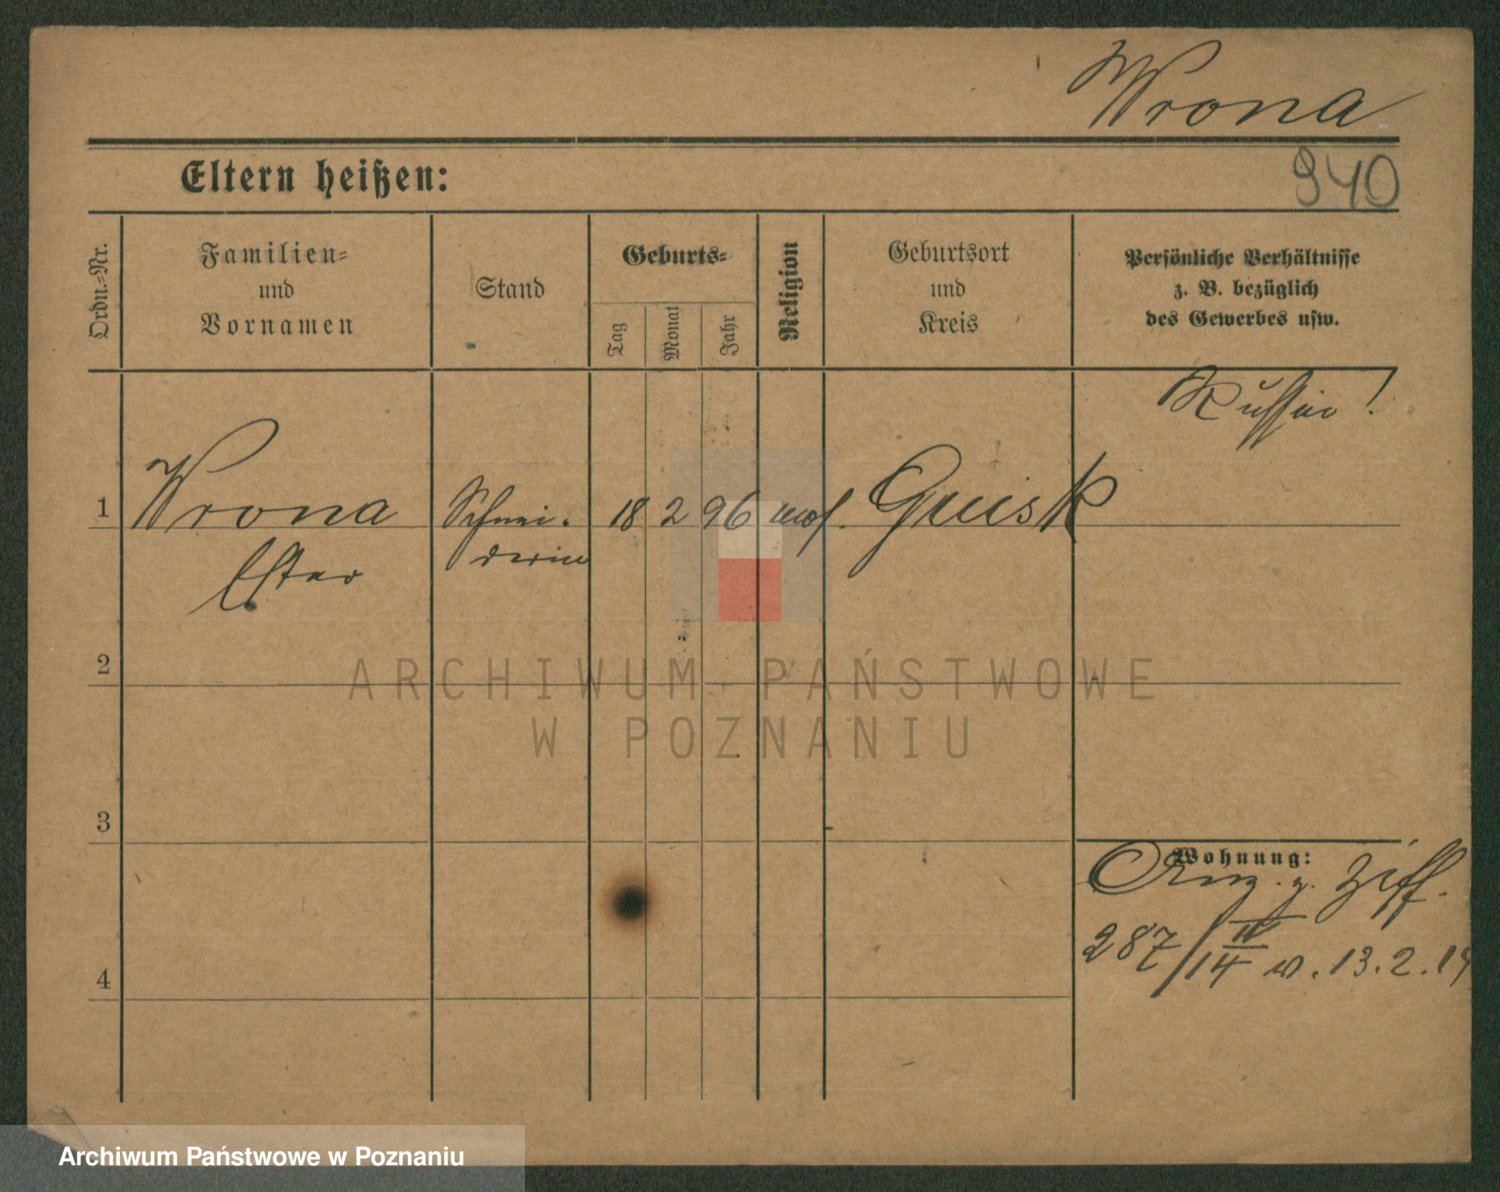 Wrona
940
Eltern heißen:
Ordn.-Nr.
Familien-
und
Vornamen
Stand
Geburts-
Tag
Monat
Jahr
Religion
Geburtsort
und
Kreis
Persönliche Verhältnisse
z. B. bezüglich
des Gewerbes usw.
Russin!
1
Wrona
Ester
Schnei-
derin
18
2
96
mos.
2
3
4
Wohnung:
Anz. z. Ziff.
287/14 IV v. 13.2.14
ARCHIWUM PAŃSTWOWE
W POZNANIU
Archiwum Państwowe w Poznaniu